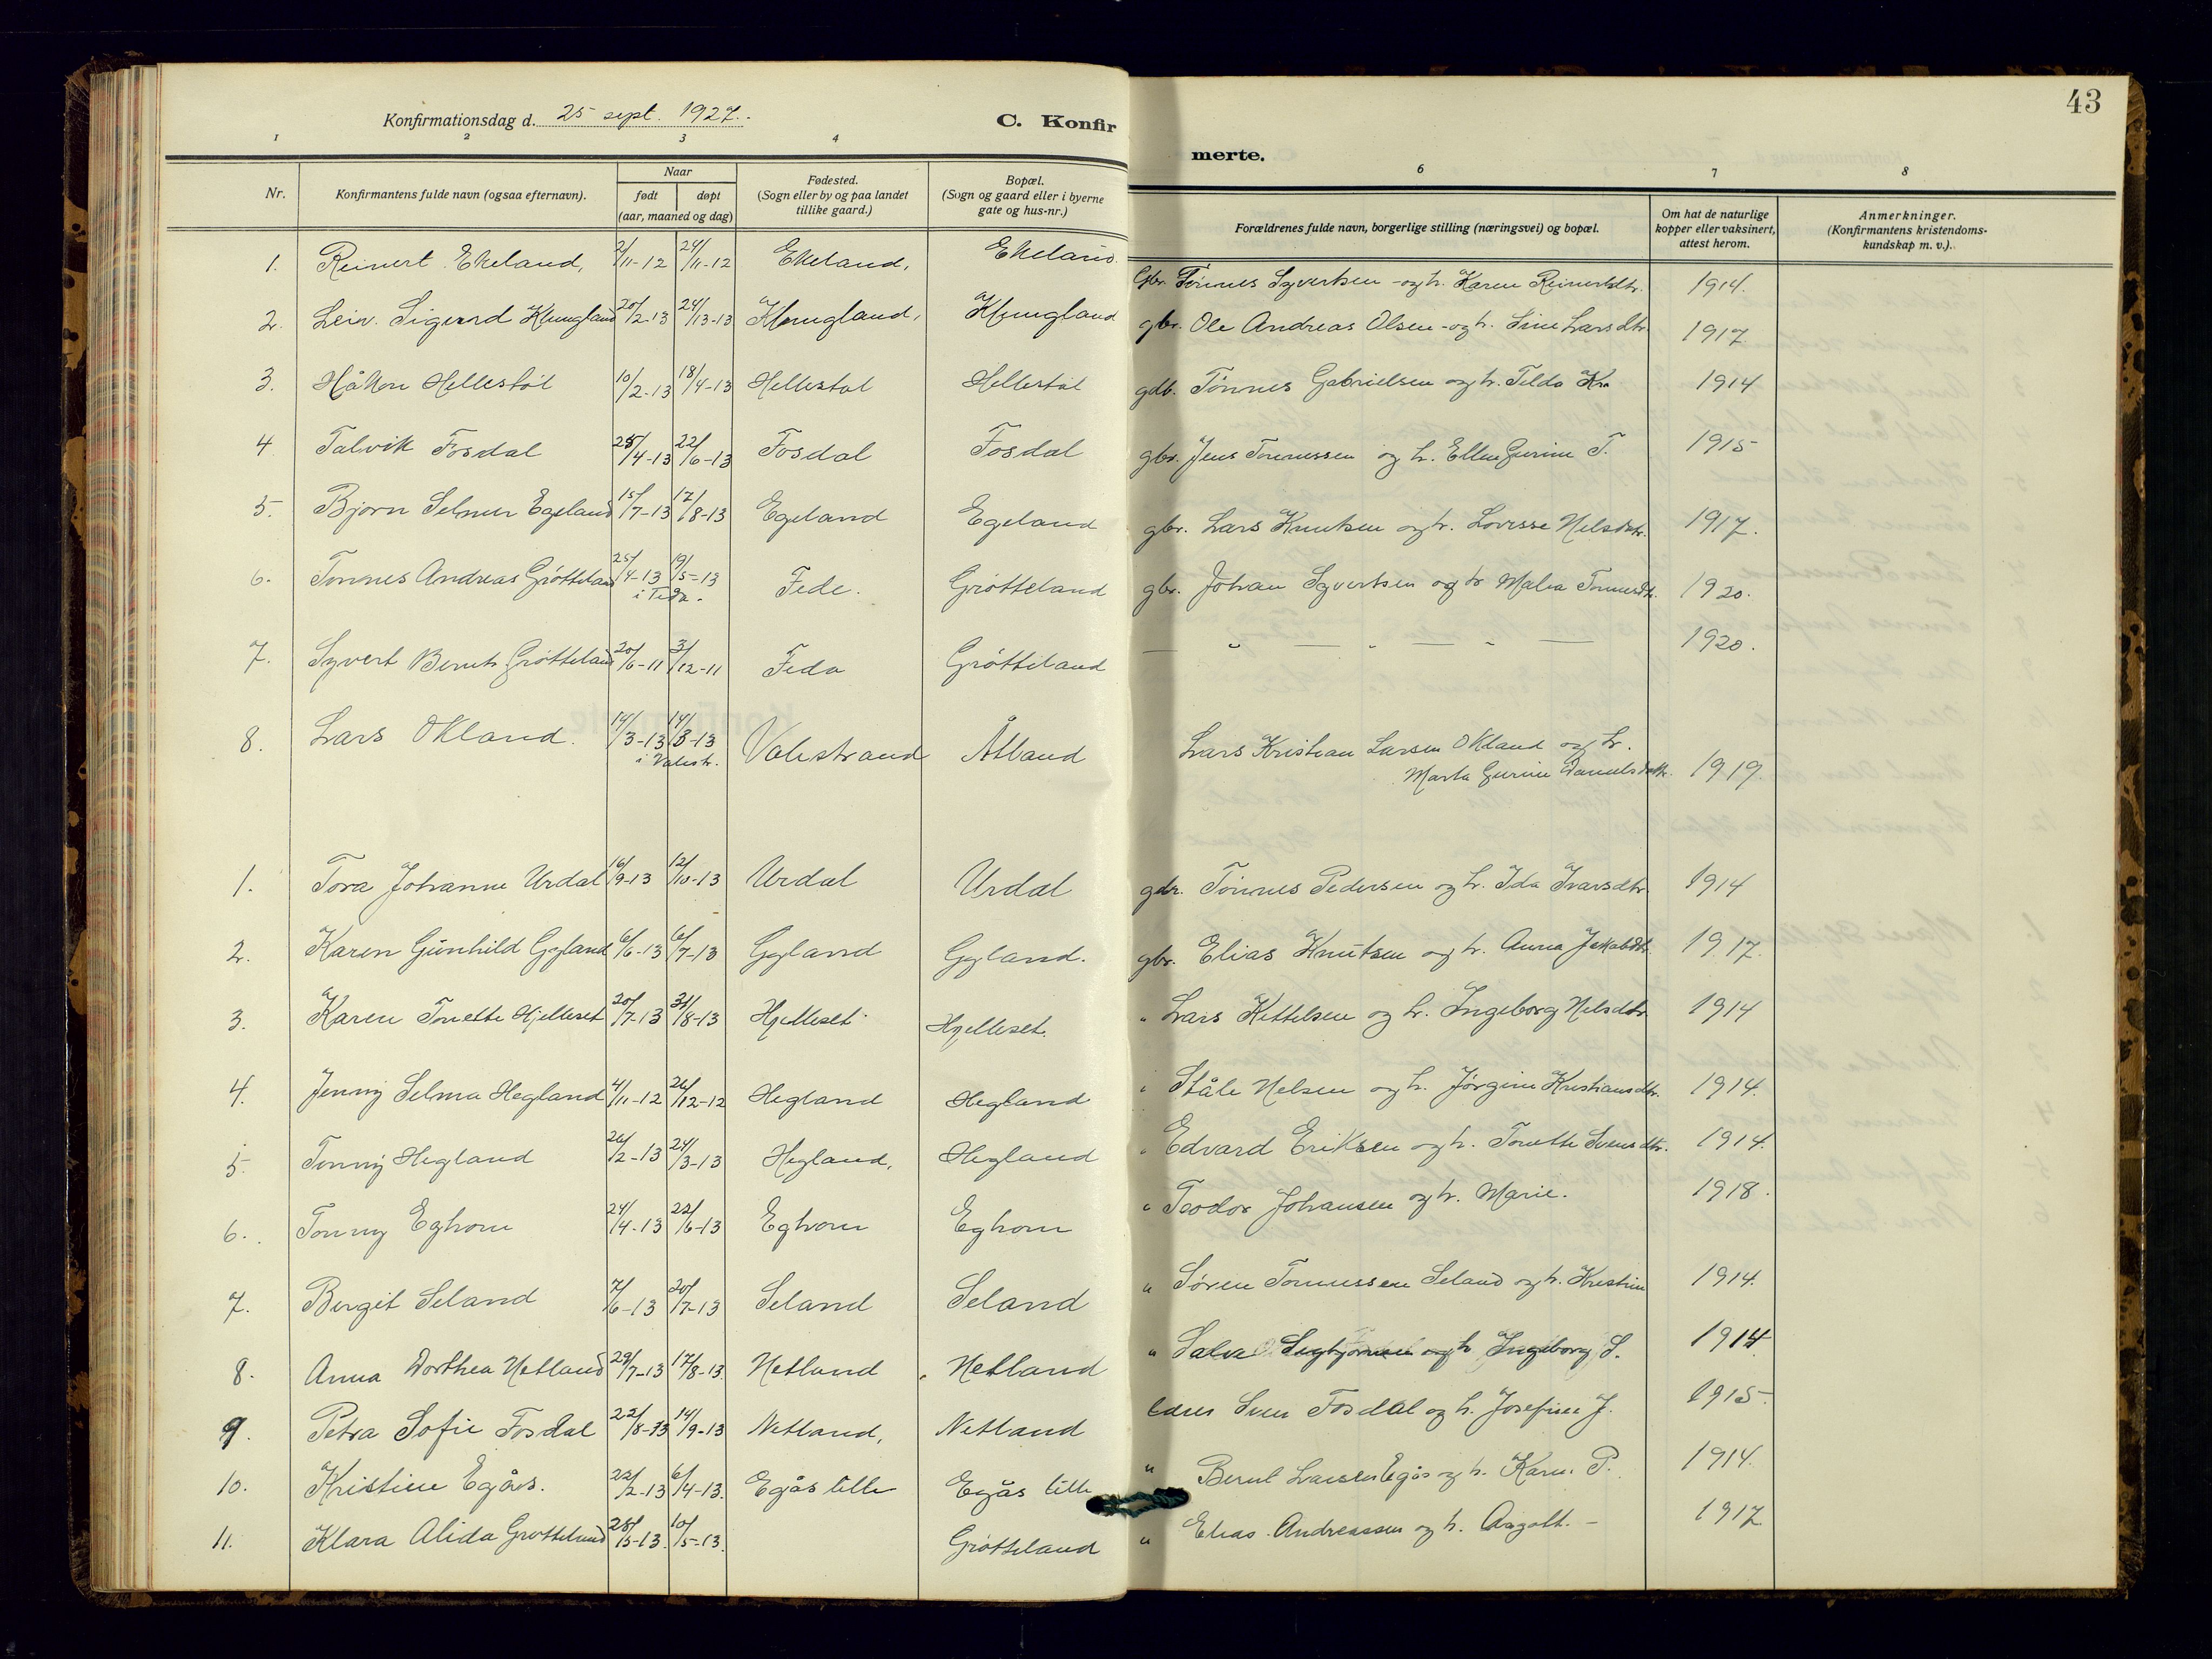 43
Konfirmationsdag d. 25 sept. 1927.
C. Konfir merte.
1 2 3 4 6 7 8
Nr.
Konfirmantens fulde navn (ogsaa efternavn).
Naar
født døpt
(aar, maaned og dag)
Fødested.
(Sogn eller by og paa landet
tillike gaard.)
Bopæl.
(Sogn og gaard eller i byerne
gate og hus-nr.)
Forældrenes fulde navn, borgerlige stilling (næringsvei) og bopæl.
Om hat de naturlige
kopper eller vaksinert,
attest herom.
Anmerkninger.
(Konfirmantens kristendoms-
kundskap m. v.).
1. Reinert Ekeland, 2/11-12 24/11-12 Ekeland, Ekeland. Gbr. Tønnes Syvertsen og h. Karen Reinertsdtr. 1914.
2. Leiv Sigurd Klungland 20/2-13 24/13-13 Klungland, Klungland gbr. Ole Andreas Olsen og h. Sine Larsdtr. 1917
3. Håkon Hellestøl 10/2-13 18/4-13 Hellestøl Hellestøl gdb. Tønnes Gabrielsen og h. Tilda Kr. 1914
4 Talvik Fosdal 25/4-13 22/6-13 Fosdal Fosdal gbr. Jens Tønnessen og h. Ellen Gurine T. 1915
5. Bjørn Selmer Egeland 15/7-13 17/8-13 Egeland Egeland gbr. Lars Knutsen og h. Lovisse Nelsdtr. 1917.
6. Tønnes Andreas Grøtteland 25/4-13 19/5-13 Fede. Grøtteland gbr. Johan Syvertsen og h. Malea Tønnesdtr. 1920.
i Feda.
7. Syvert Bernt Grøtteland 20/6-11 3/12-11 Feda Grøtteland — " — " — " — 1920.
8. Lars Økland. 14/3-13 14/3-13 Valestrand Åtland Lars Kristian Larsen Økland og h.
i Valestr. Marta Gurine Danielsdatr. 1919.
1. Tora Johanne Urdal 16/9-13 12/10-13 Urdal Urdal gdr. Tønnes Pedersen og h. Ida Ivarsdtr. 1914
2. Karen Gunhild Gyland 6/6-13 6/7-13 Gyland Gyland. gbr. Elias Knutsen og h. Anna Jakobdtr. 1917.
3. Karen Tonette Hjelleset 20/7-13 31/8-13 Hjelleset Hjelleset. " Lars Kettelsen og h. Ingeborg Nelsdtr. 1914
4. Jenny Selma Hegland 4/11-12 26/12-12 Hegland Hegland " Ståle Nelsen og h. Jørgine Kristiansdtr. 1914.
5. Tonny Hegland 26/2-13 24/3-13 Hegland, Hegland " Edvard Eriksen og h. Tonette Svensdtr. 1914.
6. Tonny Eghom 24/4-13 22/6-13 Eghom Eghom " Teodor Johansen og h. Marie. 1918.
7. Bergit Seland 7/6-13 20/7-13 Seland Seland " Søren Tønnessen Seland og h. Kristine 1914.
8. Anna Dorthea Netland 29/7-13 17/8-13. Netland Netland " Salve Segbjørnsen og h. Ingeborg S. 1914
9. Petra Sofie Fosdal 22/8-13 14/9-13 Netland, Netland lærer Sven Fosdal og h. Josefine J. 1915
10. Kristine Egås. 22/2-13 6/4-13. Egås lille Egås lille " Bernt Larsen Egås og h. Karen P. 1914.
11. Klara Alida Grøtteland 28/3-13. 10/5-13. Grøtteland " Elias Andreassen og h. Aagott. – 1917